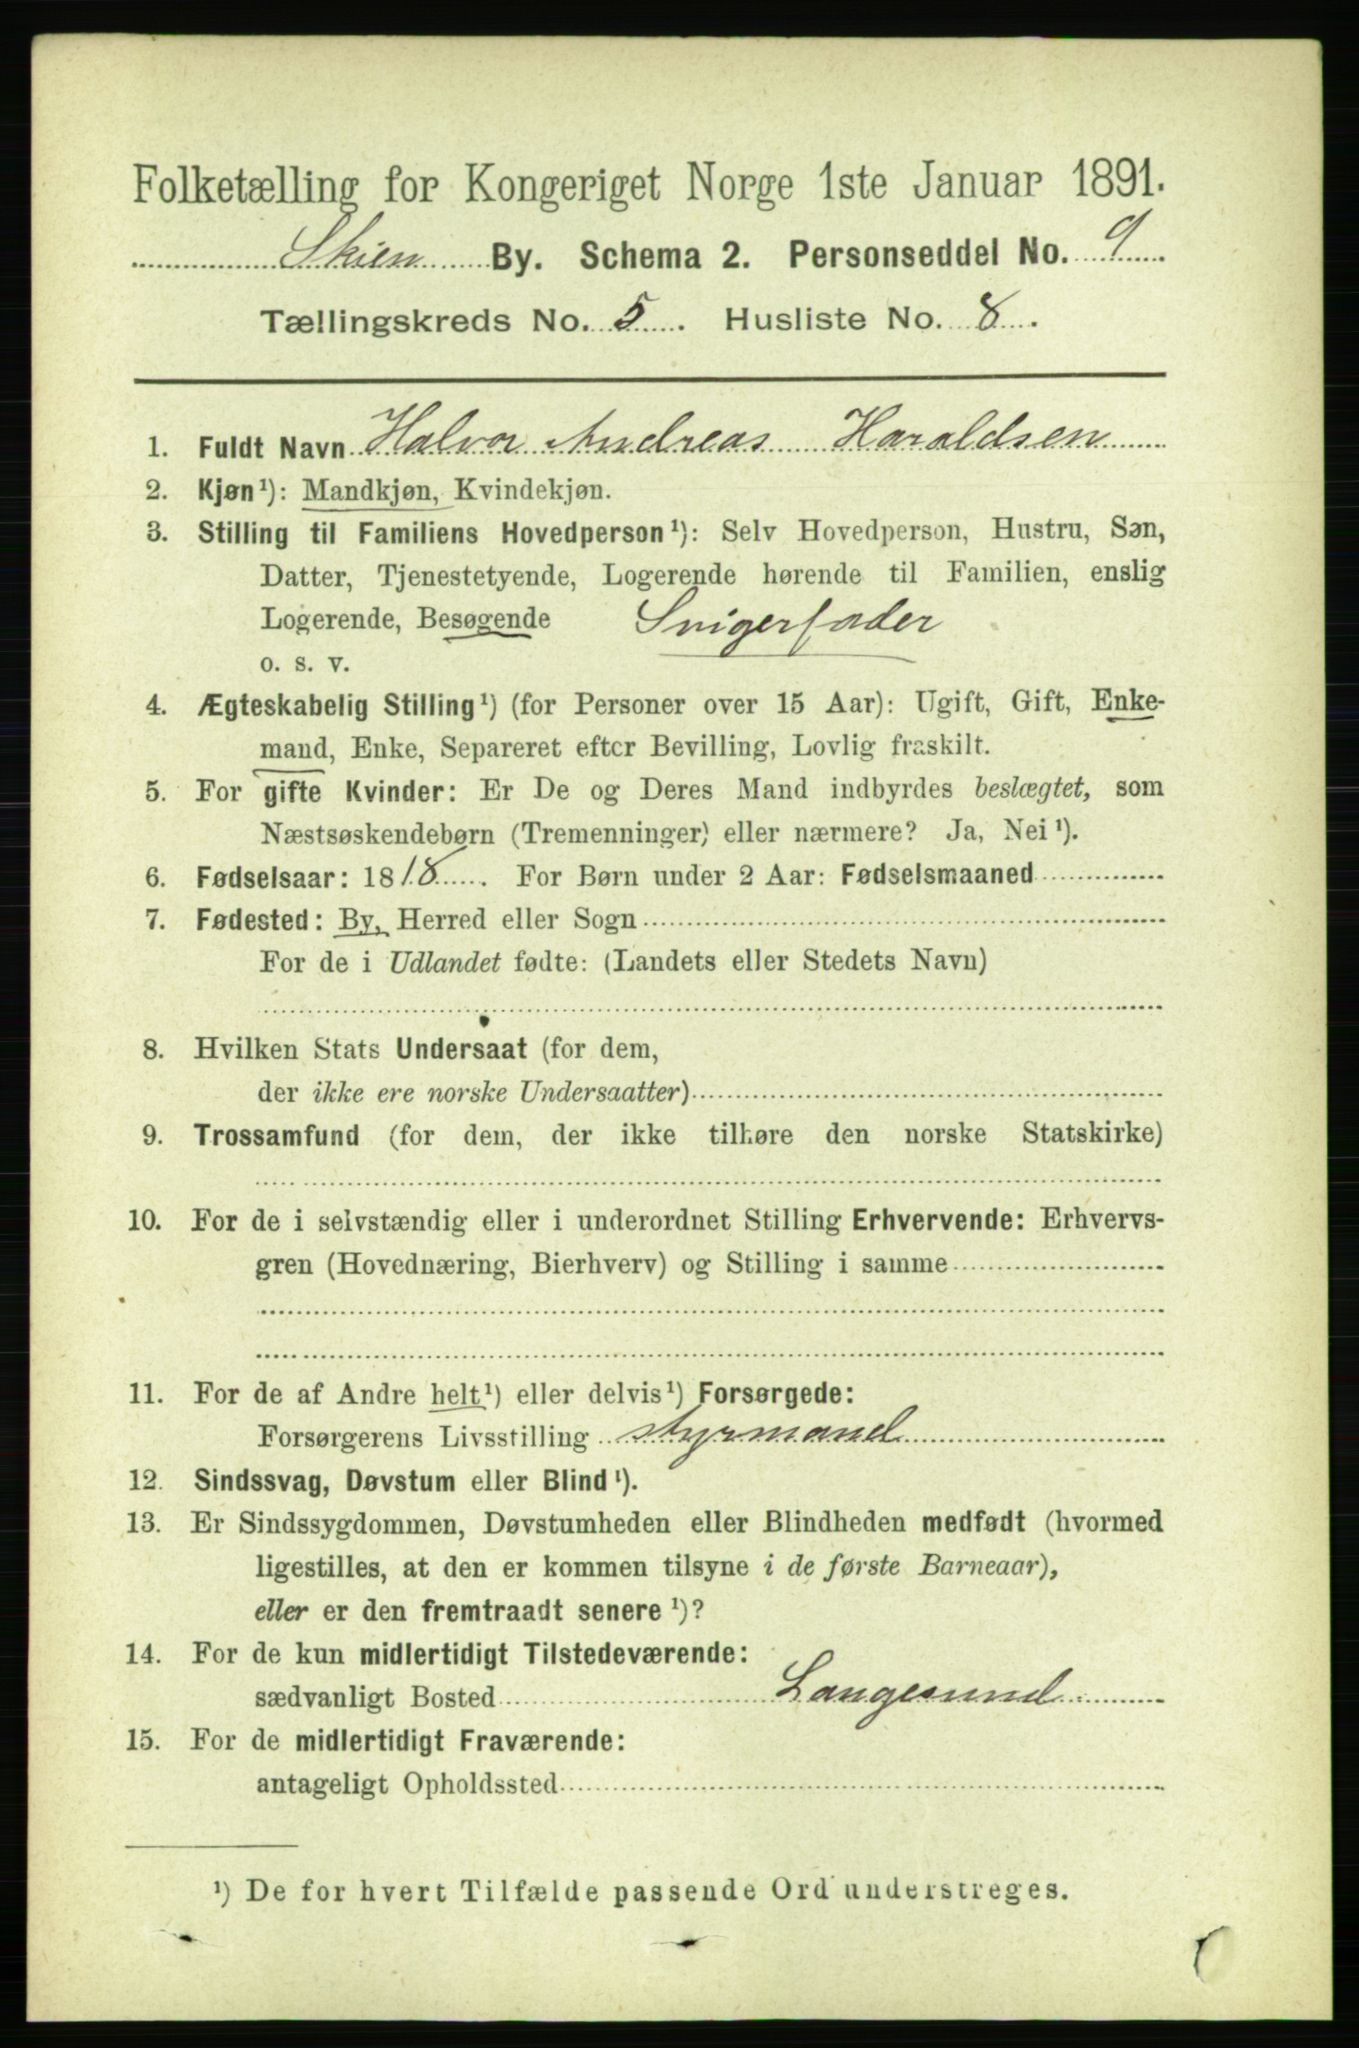 Folketælling for Kongeriget Norge 1ste Januar 1891.
Skien By. Schema 2. Personseddel No. 9
Tællingskreds No. 5. Husliste No. 8.
1. Fuldt Navn Halvor Andreas Haraldsen
2. Kjøn¹): Mandkjøn, Kvindekjøn.
3. Stilling til Familiens Hovedperson¹): Selv Hovedperson, Hustru, Søn,
Datter, Tjenestetyende, Logerende hørende til Familien, enslig
Logerende, Besøgende Svigerfader
o. s. v.
4. Ægteskabelig Stilling¹) (for Personer over 15 Aar): Ugift, Gift, Enke-
mand, Enke, Separeret efter Bevilling, Lovlig fraskilt.
5. For gifte Kvinder: Er De og Deres Mand indbyrdes beslægtet, som
Næstsøskendebørn (Tremenninger) eller nærmere? Ja, Nei¹).
6. Fødselsaar: 1818. For Børn under 2 Aar: Fødselsmaaned
7. Fødested: By, Herred eller Sogn
For de i Udlandet fødte: (Landets eller Stedets Navn)
8. Hvilken Stats Undersaat (for dem,
der ikke ere norske Undersaatter)
9. Trossamfund (for dem, der ikke tilhøre den norske Statskirke)
10. For de i selvstændig eller i underordnet Stilling Erhvervende: Erhvervs-
gren (Hovednæring, Bierhverv) og Stilling i samme
11. For de af Andre helt¹) eller delvis¹) Forsørgede:
Forsørgerens Livsstilling styrmand
12. Sindssvag, Døvstum eller Blind¹).
13. Er Sindssygdommen, Døvstumheden eller Blindheden medfødt (hvormed
ligestilles, at den er kommen tilsyne i de første Barneaar),
eller er den fremtraadt senere¹)?
14. For de kun midlertidigt Tilstedeværende:
sædvanligt Bosted Langesund
15. For de midlertidigt Fraværende:
antageligt Opholdssted
¹) De for hvert Tilfælde passende Ord understreges.